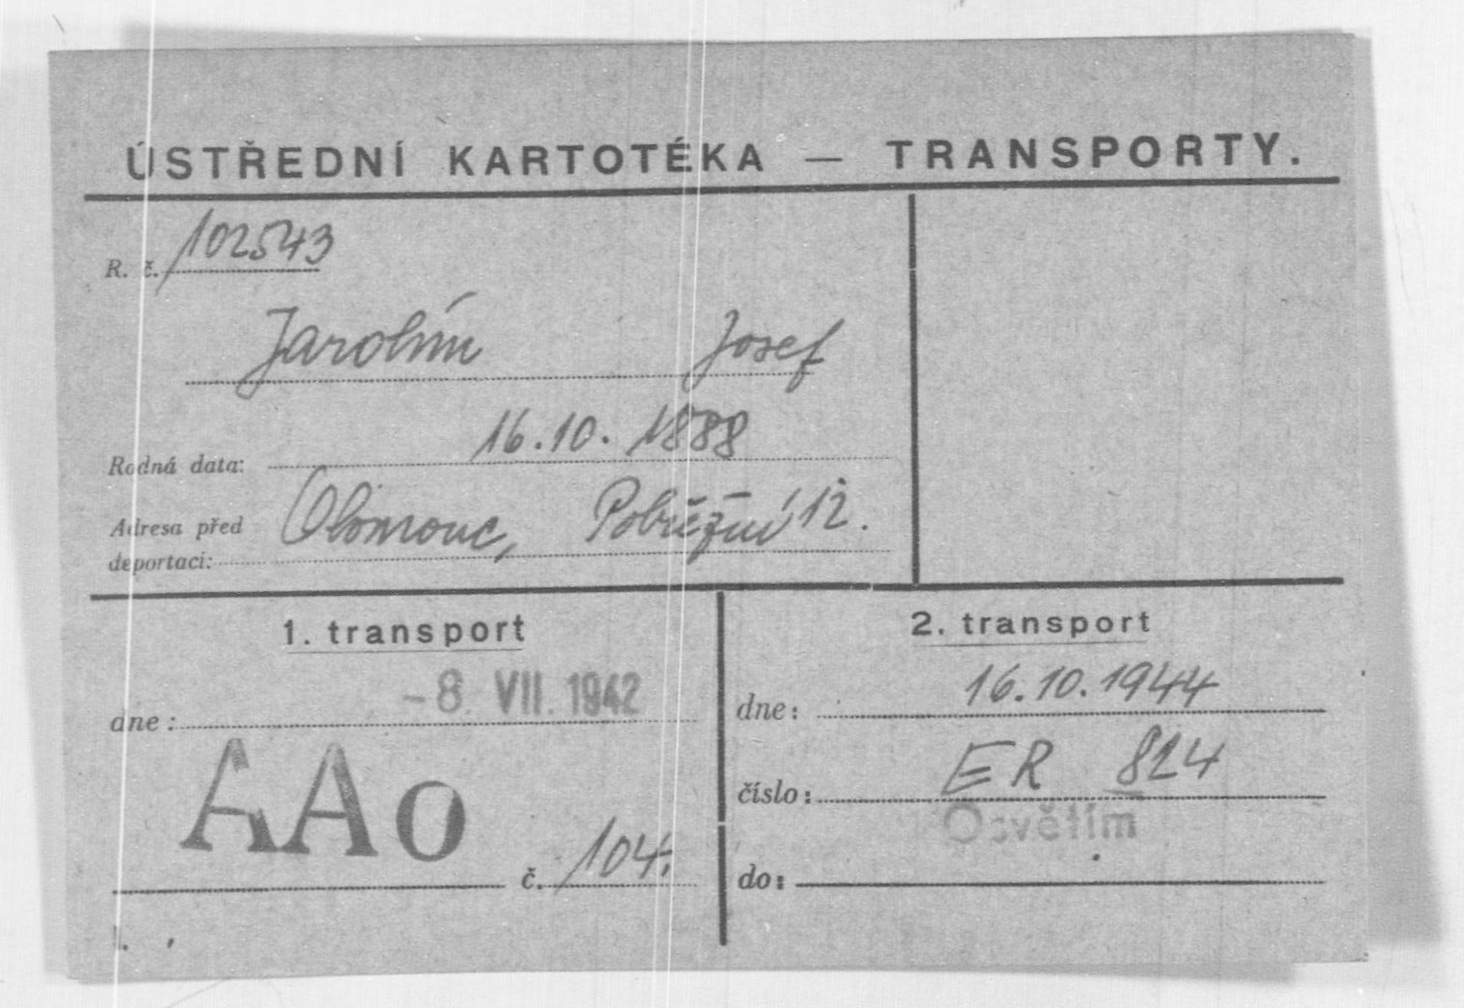 ÚSTŘEDNÍ KARTOTÉKA — TRANSPORTY.
R. č. 102543
Jarolím Josef
Rodná data: 16.10. 1888
Adresa před
deportací: Olomouc, Pobřežní 12.
1. transport
dne: -8. VII. 1942
AAo
č. 104.
2. transport
dne: 16.10.1944
číslo: ER 824
Osvětím
do: